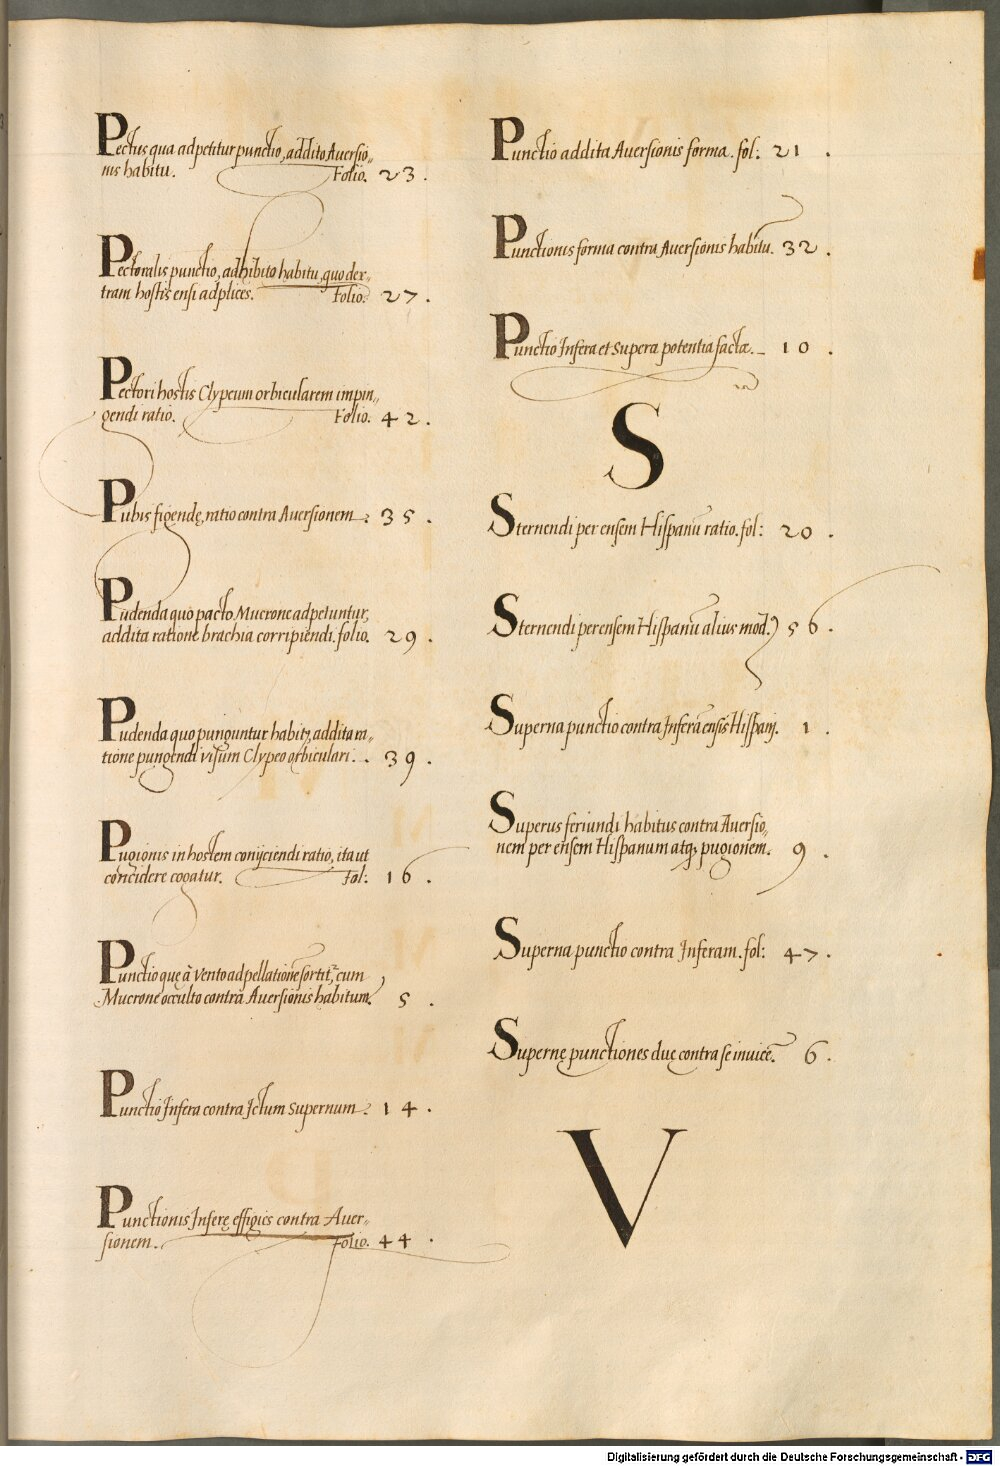 Pectus qua adpetitur punctio, addito Aversio„
nis habitu. Folio. 23.
Pectoralis punctio, adhibito habitu, quo dex„
tram hostis ensi adplices. Folio. 27.
Pectori hostis Clypeum orbicularem impin„
gendi ratio. Folio. 42.
Pubis figendę, ratio contra Aversionem. 35.
Pudenda quo pacto Mucrone adpetuntur,
addita ratione brachia corripiendi. folio. 29.
Pudenda quo punguntur habitꝫ, addita ra„
tione pungendi visum Clypeo orbiculari. 39.
Pugionis in hostem conijciendi ratio, ita ut
concidere cogatur. fol: 16.
Punctio quę à Vento adpellationē sortitꝛ, cum
Mucrone occulto contra Aversionis habitum. 5.
Punctio Infera contra Ictum Supernum. 14.
Punctionis Inferę effigies contra Aver„
sionem. Folio. 44.
Punctio addita Aversionis forma. fol: 21.
Punctionis forma contra Aversionis habitū. 32.
Punctio Infera et Supera potentia factæ. 10.
S
Sternendi per ensem Hispanū ratio. fol: 20.
Sternendi per ensem Hispanū alius mod9 56.
Superna punctio contra Inferā ensis Hispanj. 1.
Superus feriundi habitus contra Aversio„
nem per ensem Hispanum atqꝫ pugionem. 9.
Superna punctio contra Inferam. fol: 47.
Supernę punctiones duę contra se invicē. 6.
V
Digitalisierung gefördert durch die Deutsche Forschungsgemeinschaft - DFG